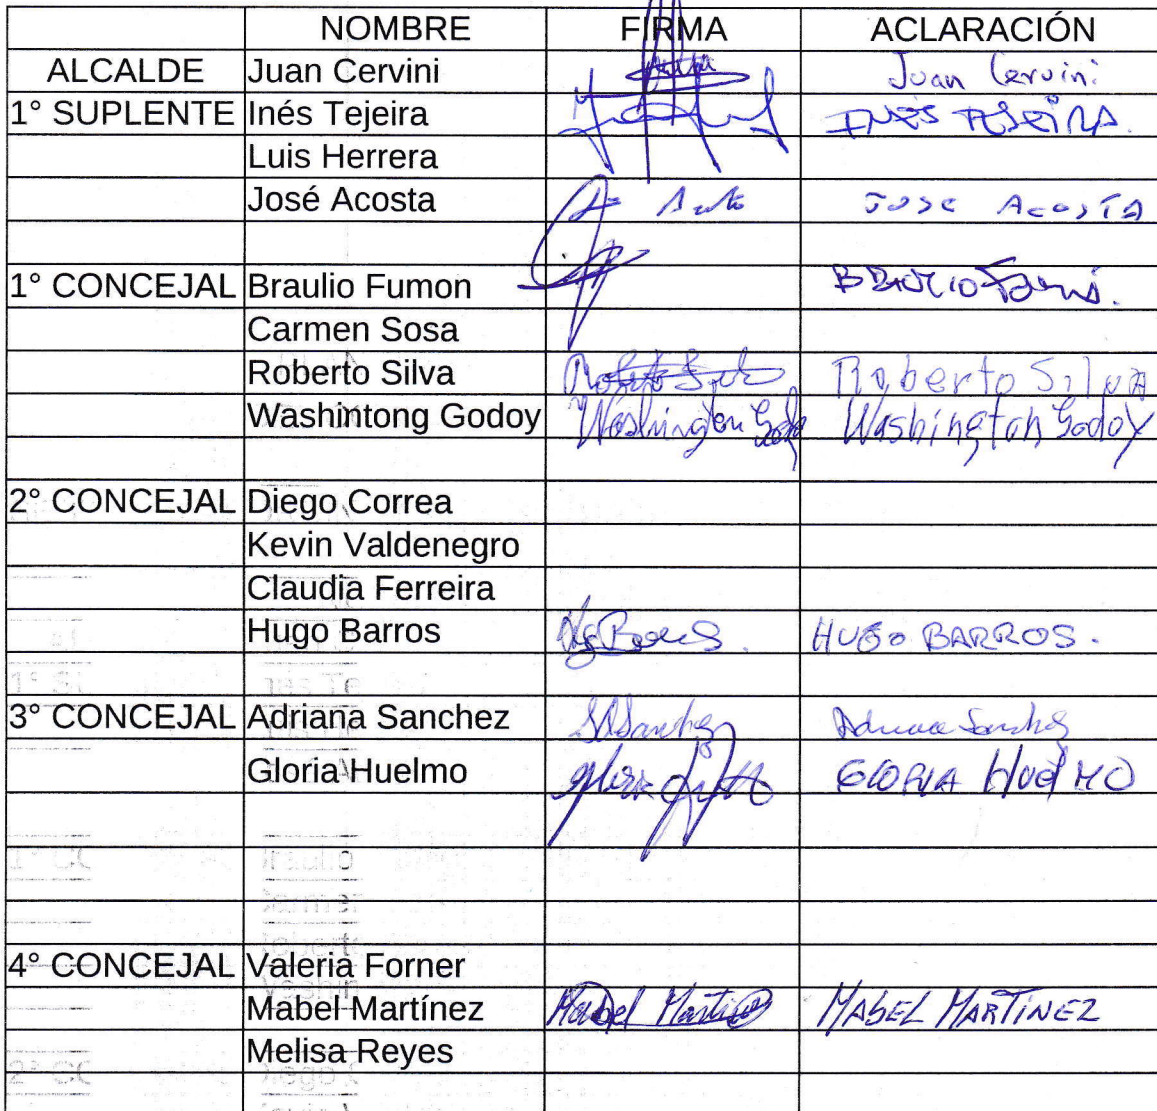 NOMBRE FIRMA ACLARACIÓN
ALCALDE Juan Cervini Juan Cervini
1° SUPLENTE Inés Tejeira INÉS TEJEIRA.
Luis Herrera
José Acosta JOSE ACOSTA
1° CONCEJAL Braulio Fumon BRAULIO
Carmen Sosa
Roberto Silva Roberto Silva Roberto Silva
Washintong Godoy Washington Godoy Washington Godoy
2° CONCEJAL Diego Correa
Kevin Valdenegro
Claudia Ferreira
Hugo Barros HUGO BARROS.
3° CONCEJAL Adriana Sanchez Sanchez Adriana Sanchez
Gloria Huelmo Gloria GLORIA HUELMO
4° CONCEJAL Valeria Forner
Mabel Martínez Mabel Martinez MABEL MARTÍNEZ
Melisa Reyes